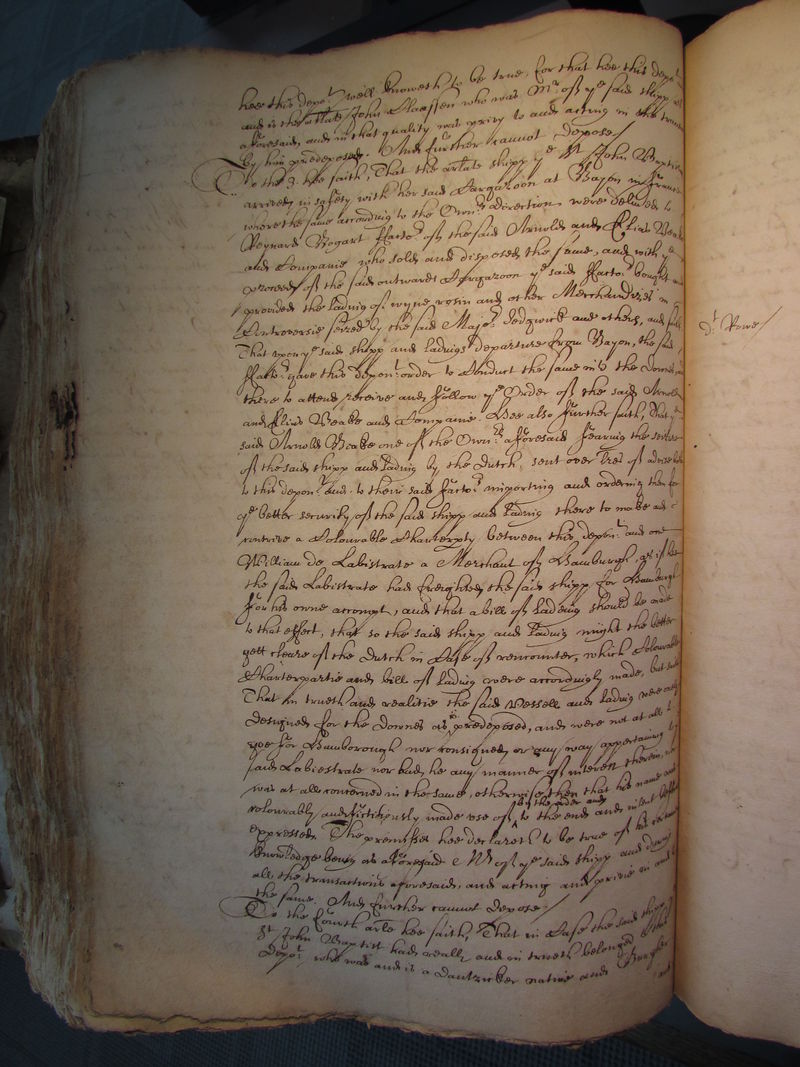 hee this depot. well knoweth to be true, for that hee this depot
and is the artlate John Claassen who was Mr. of ye said shipp
aforesaid, and in that quality was privy to and acting in the
by him predeposed. And further cannot depose/
To the 3. hee saith, That the artlate shipp ye St. John Baptist
arrived in safety with her said Cargazoon at Bayon in France
where the same according to the Ownrs. direction were delivered to
Reynard Bogart Factor. of the said Arnold and Elias Beake
and Companie who sold and disposed the same, and with ye
proceed of the said outwards Cargazoon ye said Factor. bought and
provided the lading of wyne, rosin and other Merchandizes in
Controversie seized by the said Major. Sedgwick and others, and
That upon ye said shipp and ladings departure from Bayon, the said
Factor. gave this depont. order to Conduct the same into the Downes,
there to attend, receive and follow ye Order of the said Arnold
and Elias Beake and Companie. Hee also further saith, that ye
said Arnold Beake one of the Ownrs. aforesaid fearing the seizure
of the said shipp and lading by the Dutch, sent over lres of advise
to this depont. and to their said Factor. importing and ordering them for
ye better security of the said shipp and lading there to make and
contrive a Colourable Charterpty between this depont. and one
William de Labistrate a Merchant of Hamburgh, as if hee
the said Labistrate had freighted the said shipp for Hamburgh
for his owne accompt, and that a bill of Ladeing should be made
to that effect, that so the said shipp and lading might the better
gett cleare of the Dutch in Case of rencounter, which Colourable
Charterpartie and bill of lading were accordingly made, but
That in trueth and realitie the said Vessell and lading were
designed for the Downes as is predeposed, and were not at all to
goe for Hamborough nor consigned or any way appertaining to
said Labiestrate nor had he any manner of interest therein, nor
was at all concerned in the same, otherwise then that his name was
colourably and fictitiously made use of by the order and to the ends and intent
expressed. The premisses hee declareth to be true of his certaine
knowledge being as aforesaid Mr. of ye said shipp and
all the transactions aforesaid, and acting and privie in and
the same. And further cannot depose/
To the fourth arle hee saith, That in Case the said shipp
St John Baptist had really and in trueth belonged
Depot. who was and is a Dantzicker native and Burgher
Dt. Rowe/